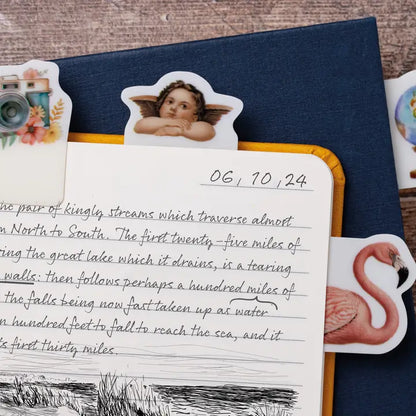 06, 10, 24
pair of kingly streams which traverse almost
North to South. The first twenty-five miles of
ing the great lake which it drains, is a tearing
walls: then follows perhaps a hundred miles of
the falls being now fast taken up as water
n hundred feet to fall to reach the sea, and it
s first thirty miles.